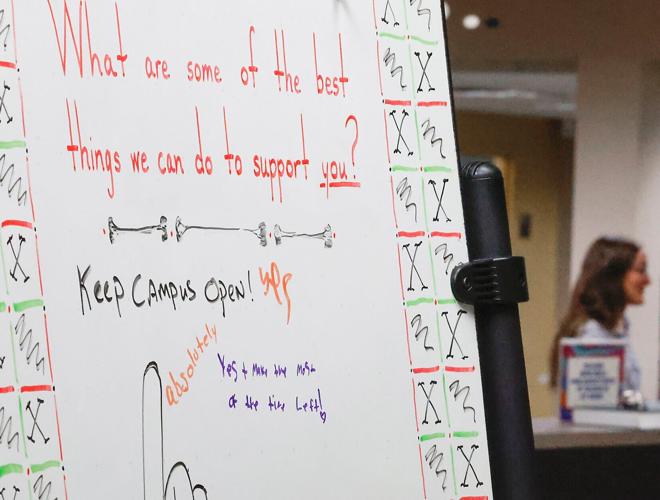 What are some of the best
things we can do to support you?
Keep Campus Open! Yes
absolutely
Yes + Make the most
of the time left!